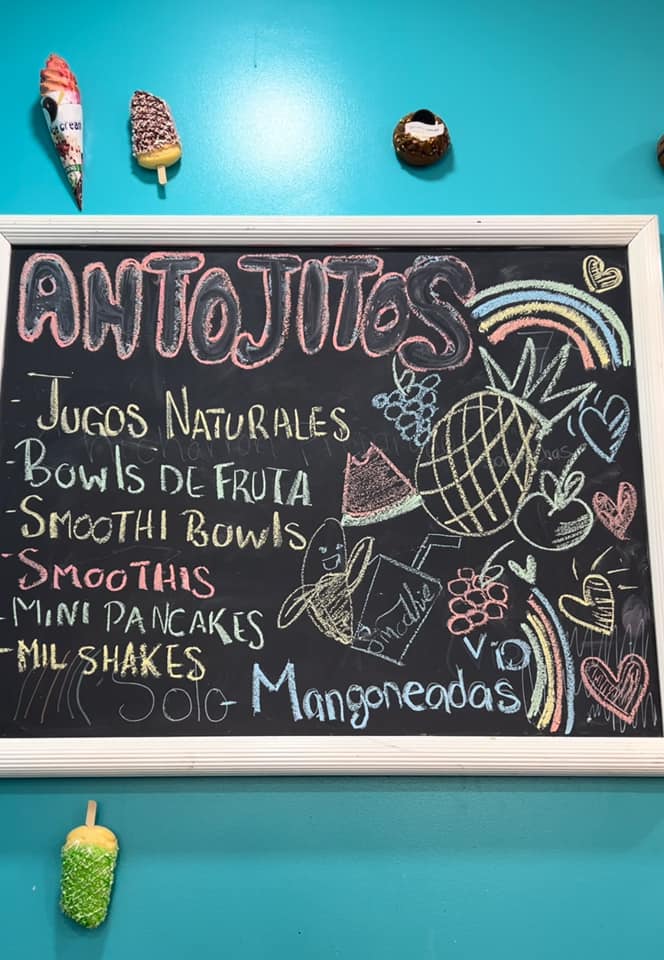 ice cream
ANTOJITOS
- JUGOS NATURALES
- BOWlS DE FRUTA
- SMOOTHI BOWlS
- SMOOTHIS
- MINI PANCAKES
- MIL SHAKES
Smoothie
Solo
Mangoneadas